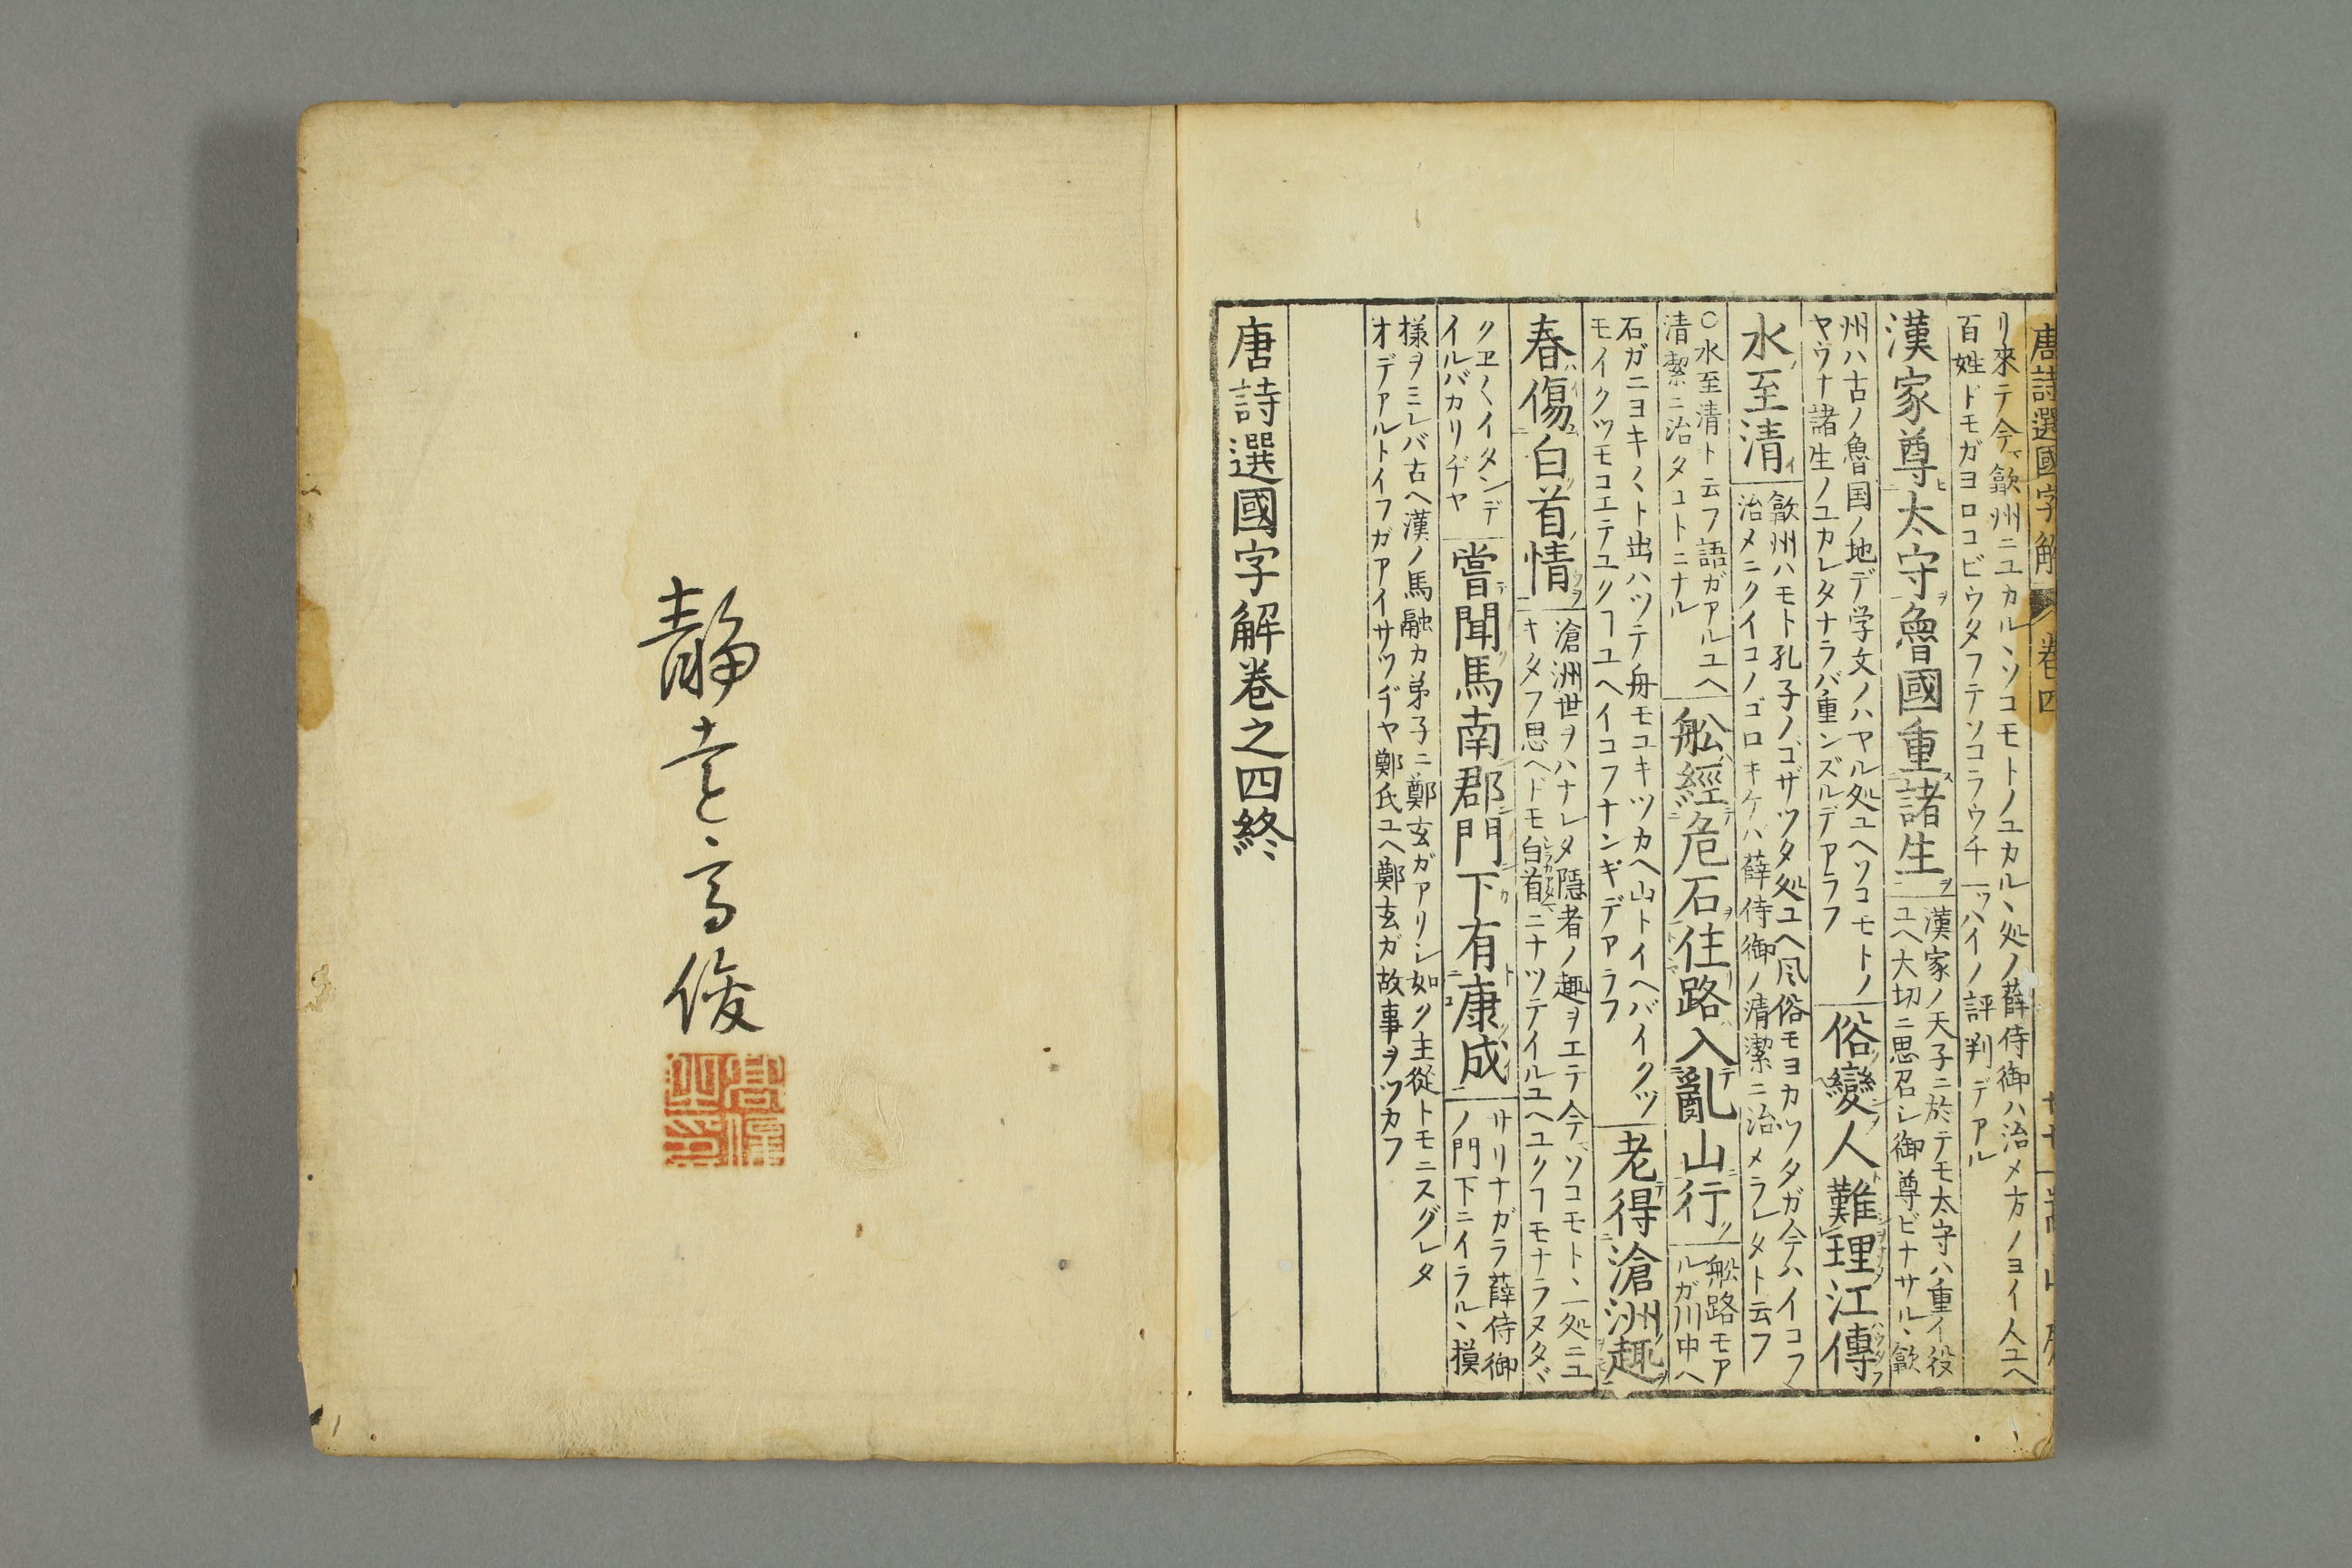 唐詩選國字解 卷四
リ來テ今マデ歙州ニユカルヽソコモトノユカルヽ処ノ薛侍御ハ治メ方ノヨイ人ユヘ
百姓ドモガヨロコビウタフテソコラウチ一ツハイノ評判デアル
漢家尊太守魯國重諸生
漢家ノ天子ニ於テモ太守ハ重イ役
ユヘ大切ニ思召シ御尊ビナサルヽ歙
州ハ古ノ魯国ノ地デ学文ノハヤル処ユヘソコモトノ
ヤウナ諸生ノユカレタナラバ重ンズルデアラフ
俗變人難理江傳
水至清
歙州ハモト孔子ノゴザツタ処ユヘ风俗モヨカツタガ今ハイコフ
治メニクイコノゴロキケハ薛侍御ノ清潔ニ治メラレタト云フ
○水至清ト云フ語ガアルユヘ
清潔ニ治タユトニナル
舩經危石住路入亂山行
舩路モア
ルガ川中ヘ
石ガニヨキ〳〵ト出ハツテ舟モユキツカヘ山トイヘバイクツ
モイクツモコエテユクフユヘイコフナンギデアラフ
老得滄洲趣
春傷白首情
滄洲世ヲハナレタ隱者ノ趣ヲエテ今マソコモトヽ一処ニユ
キタフ思ヘドモ白首ニナツテイルユヘユクフモナラヌタヾ
クヱ〳〵イタンデ
イルバカリヂヤ
嘗聞馬南郡門下有康成
サリナガラ薛侍御
ノ門下ニイラルヽ摸
様ヲミレバ古ヘ漢ノ馬融カ弟子ニ鄭玄ガアリシ如ク主從トモニスグレタ
オデアルトイフガアイサツヂヤ鄭氏ユヘ鄭玄ガ故事ヲツカフ
唐詩選國字解卷之四終
靜
俊